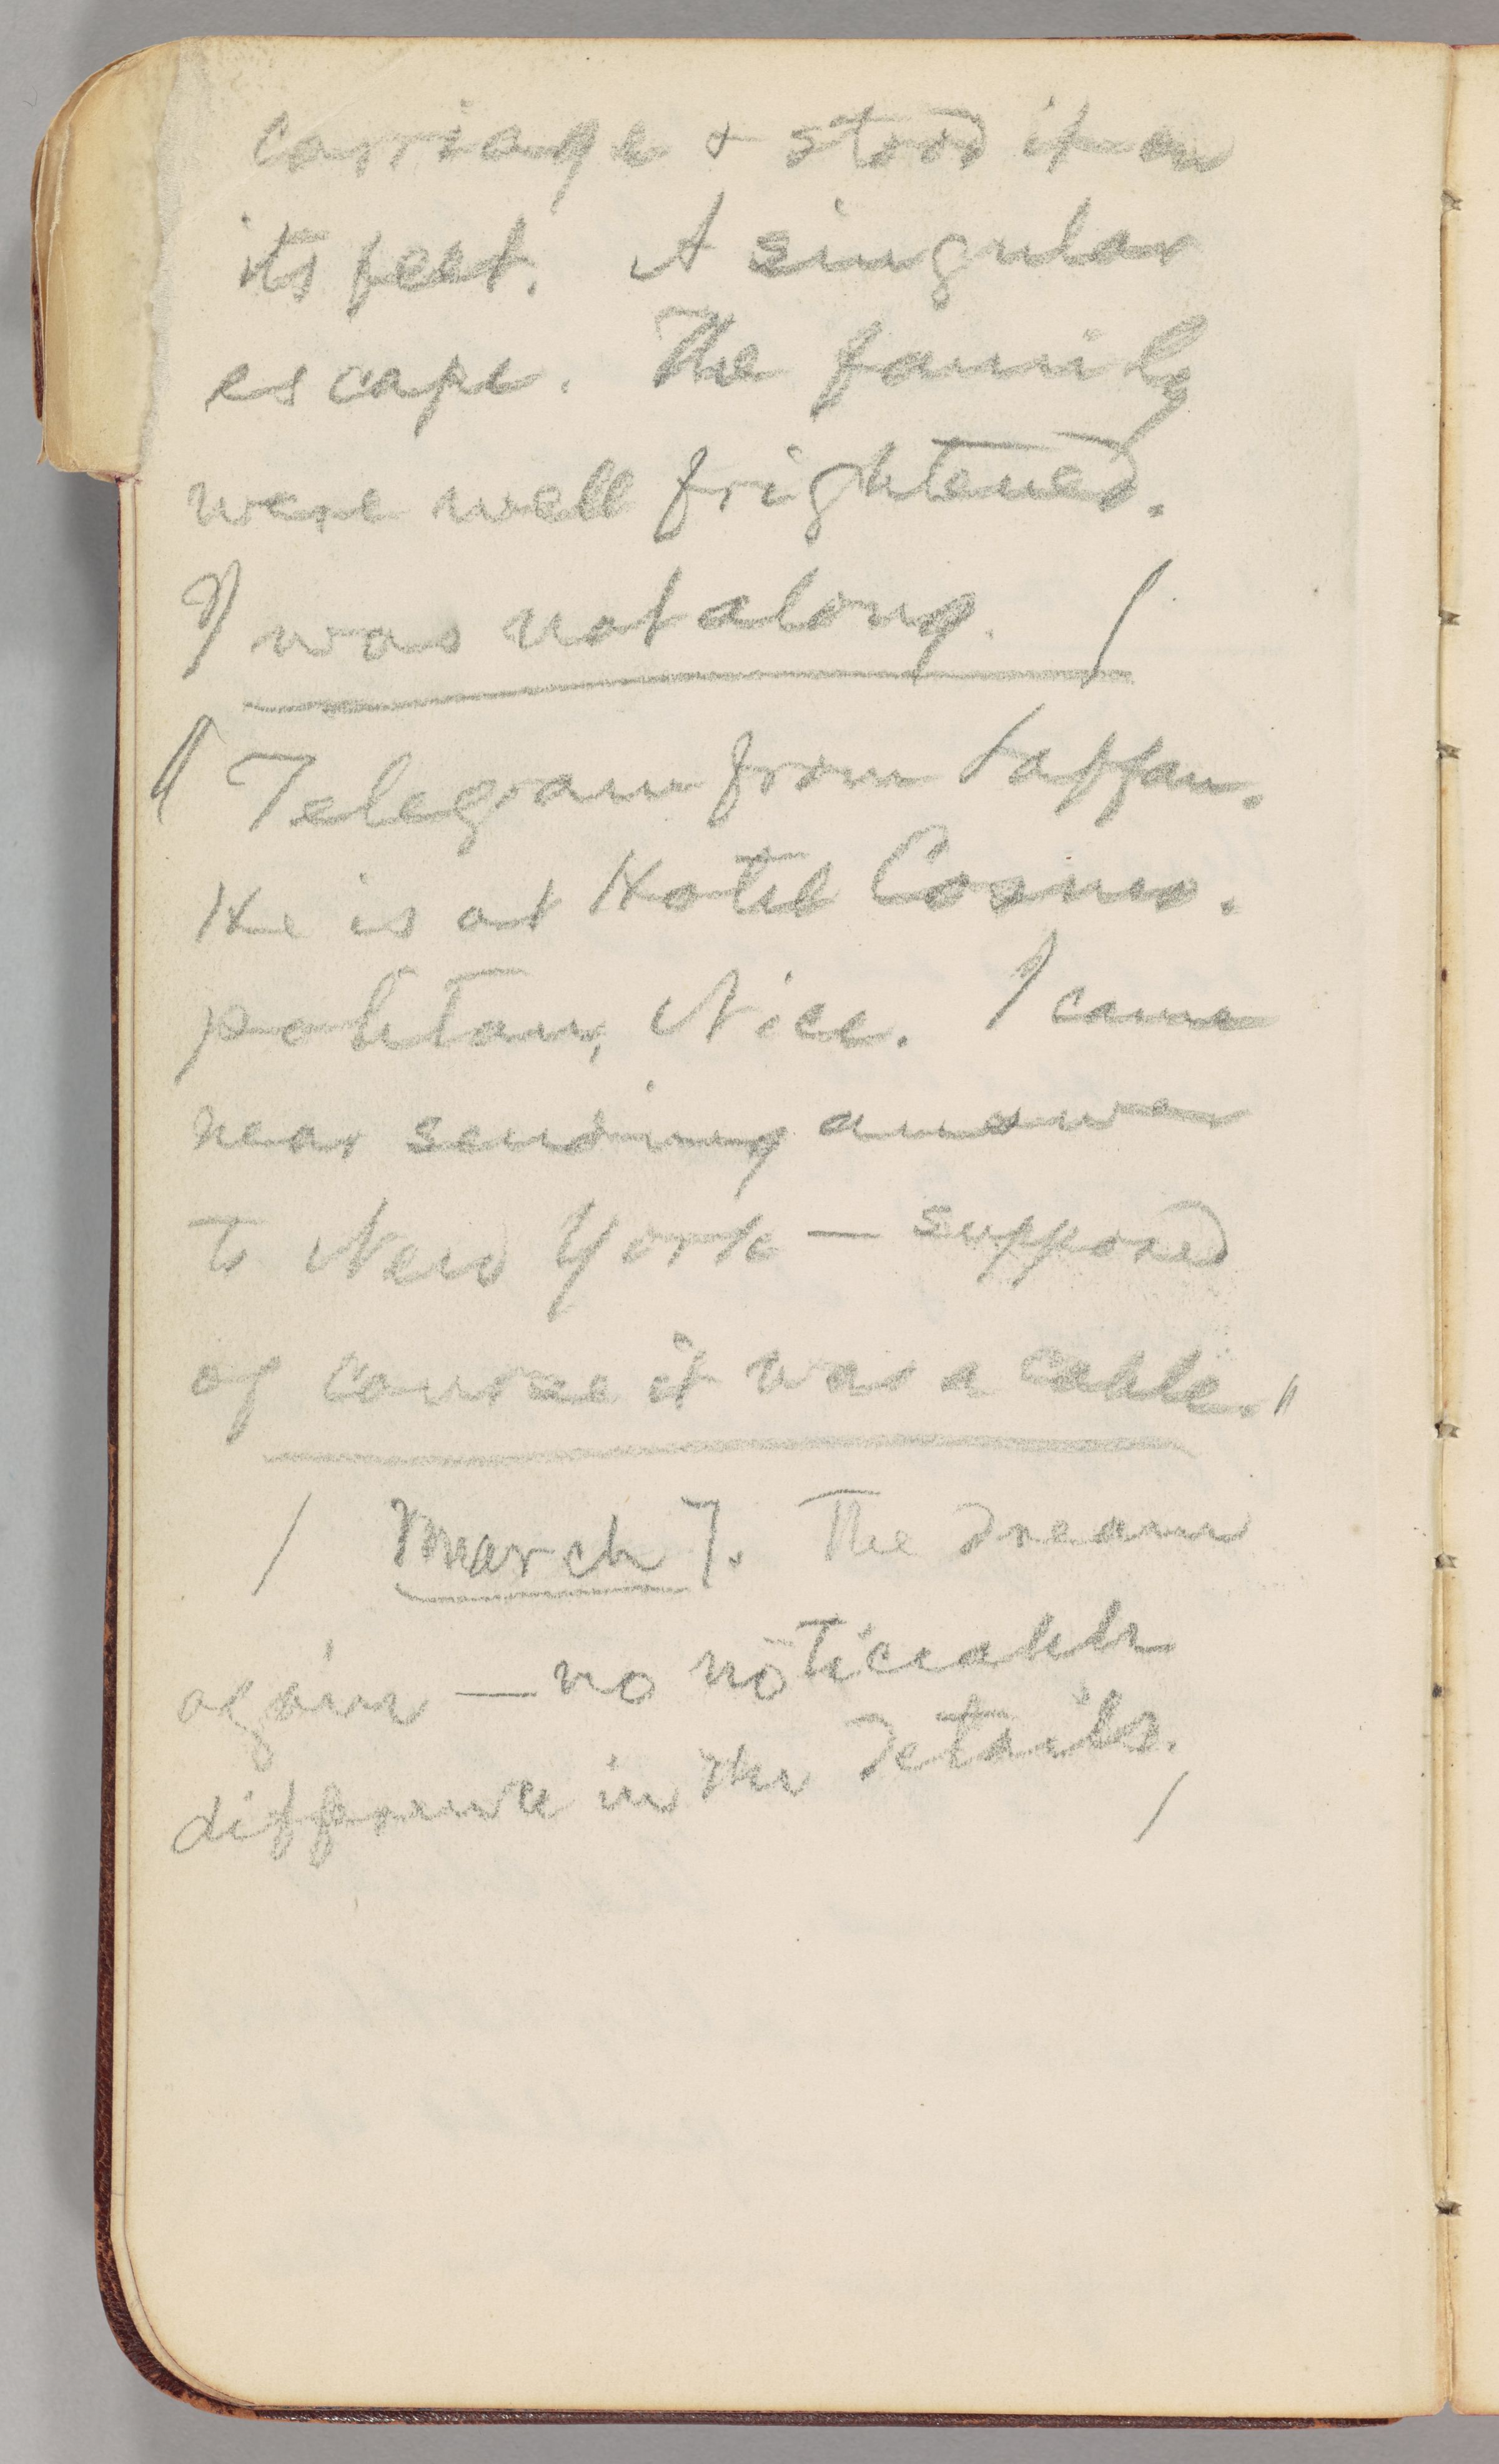 carriage & stood it on
its feet. A singular
escape. The family
were well frightened.
I was not along. /
// Telegram from Laffan.
He is at Hotel Cosmo-
politan, Nice. I came
near sending answer
to New York — supposed
of course it was a cable. //
/ March 7. The dream
again — no noticeable
difference in the details. /